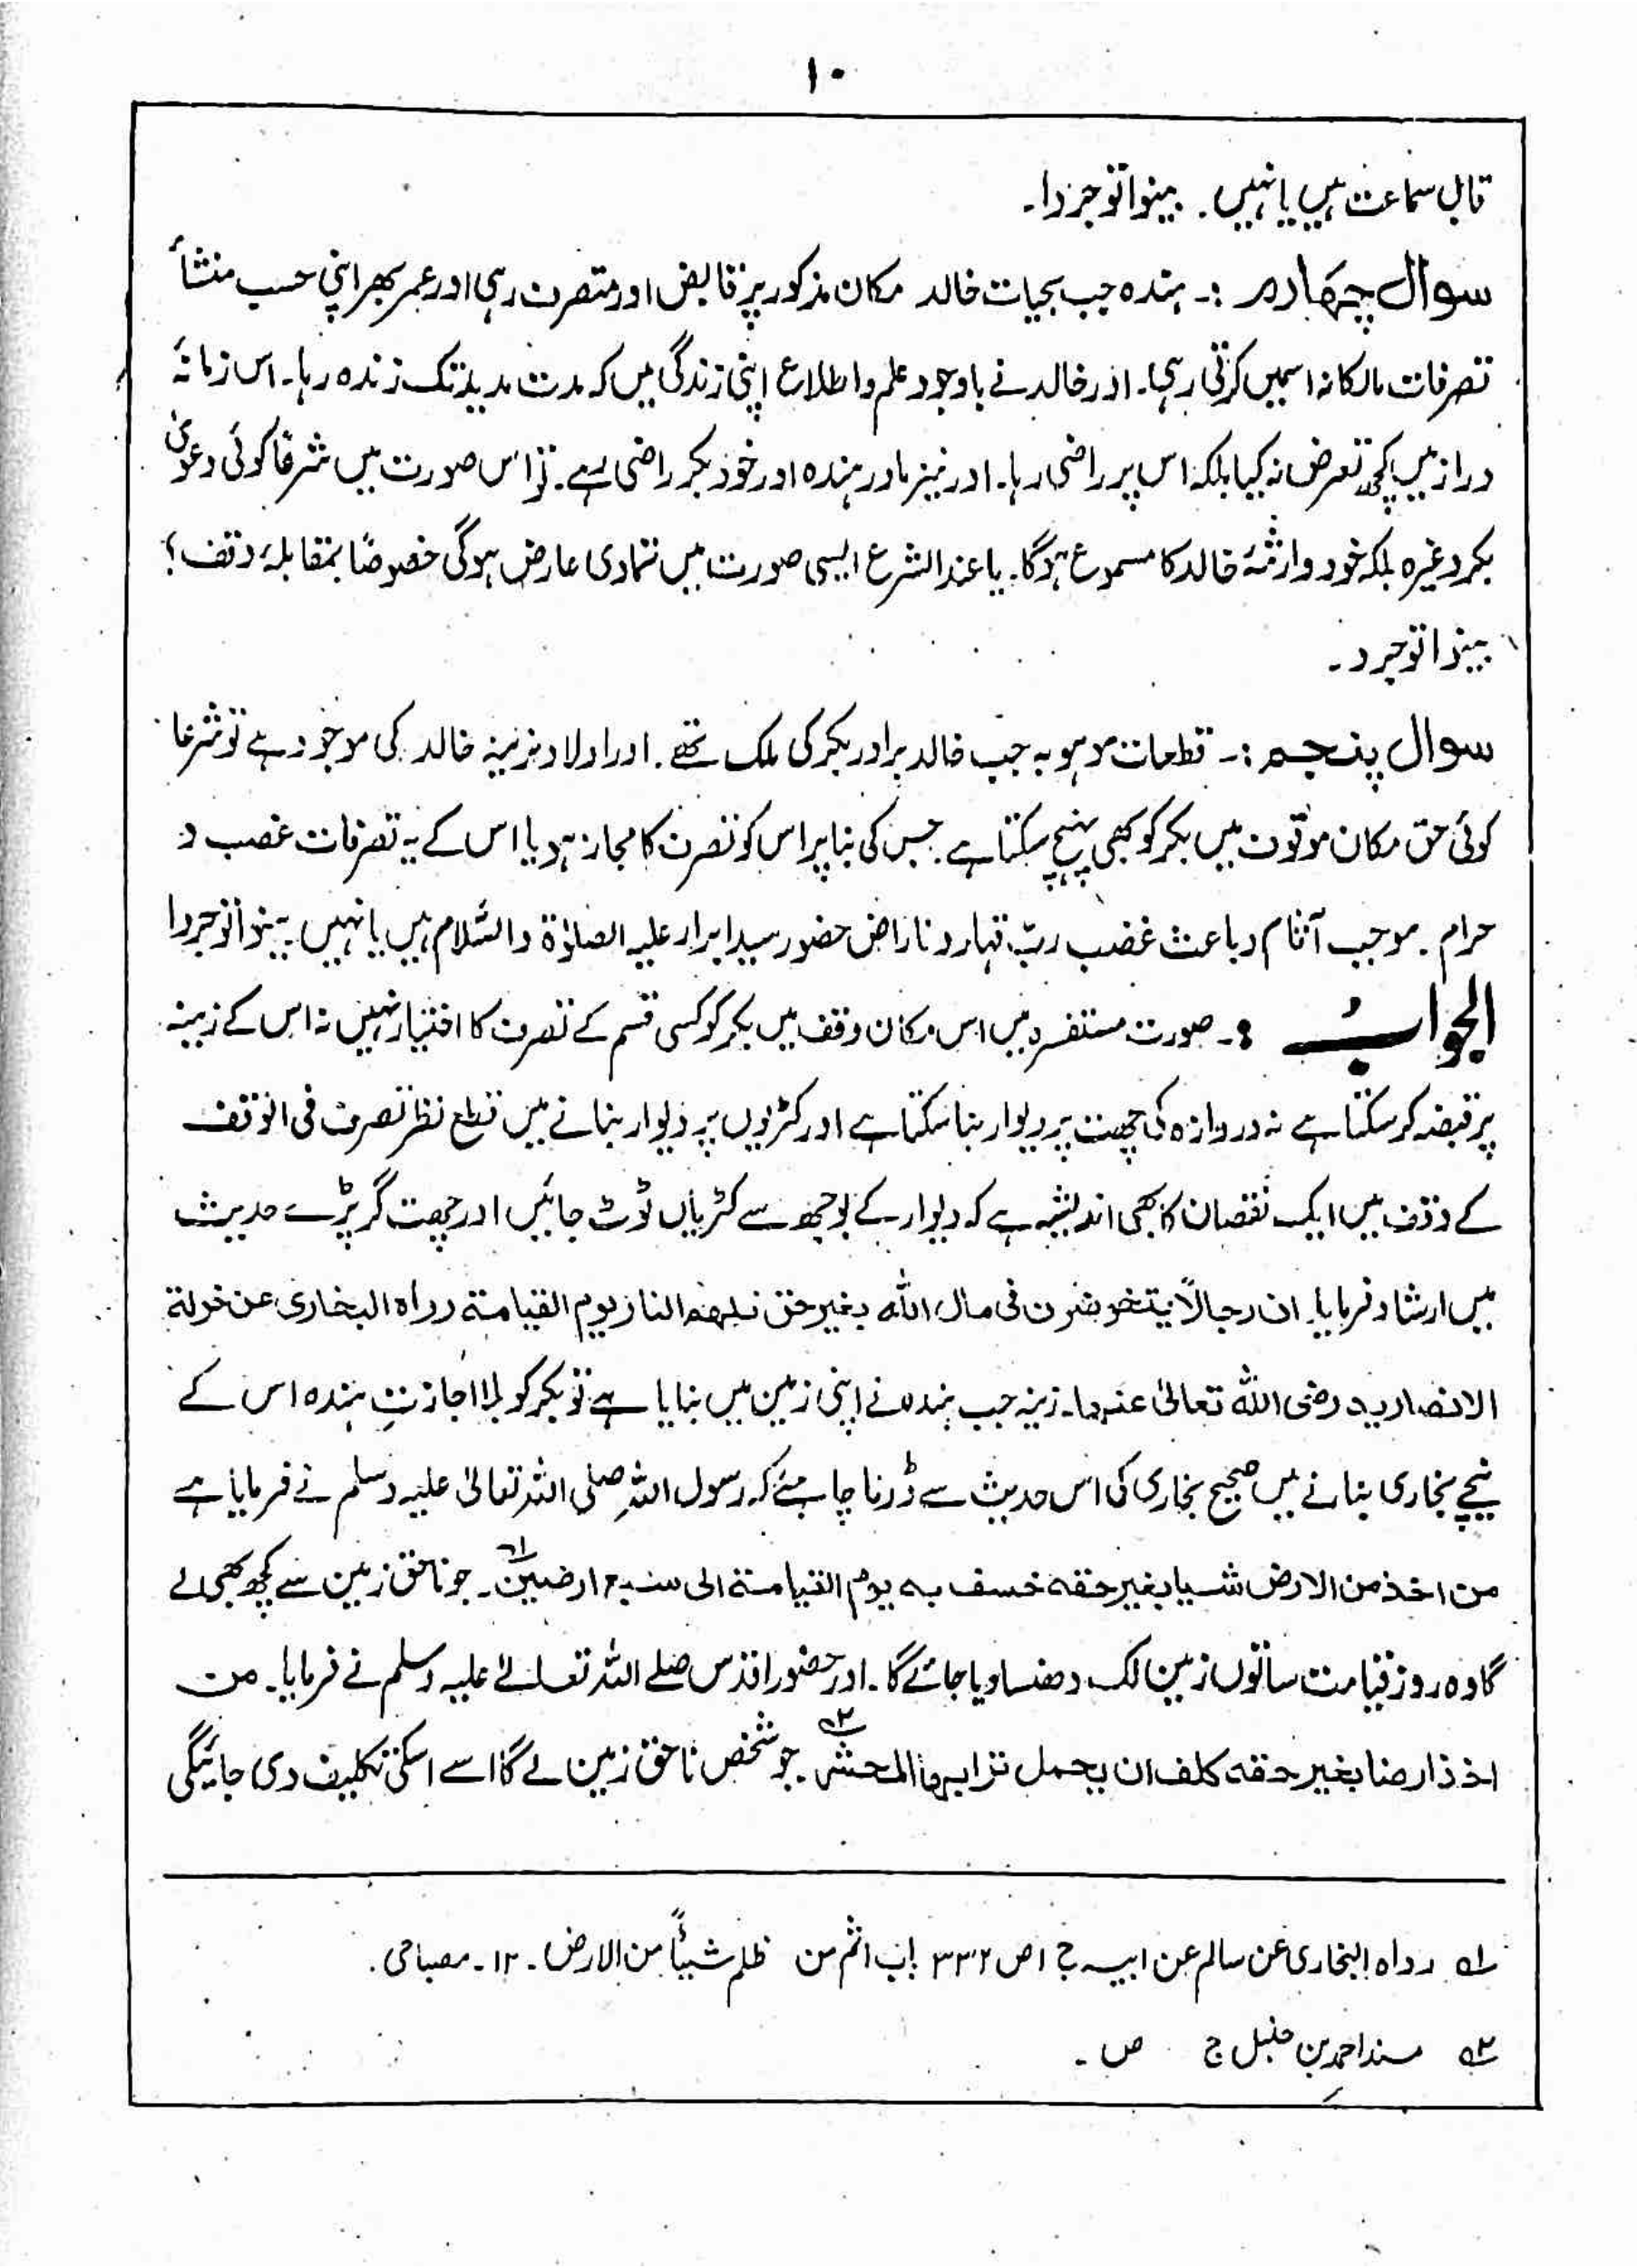 ۱۰
قابل سماعت ہیں یا نہیں۔ بینوا توجروا۔
سوال چہارم :۔ ہندہ جب بحیات خالد مکان مذکور پر قابض اور متصرف رہی اور عمر بھر اپنی حسب منشأ
تصرفات مالکانہ اسمیں کرتی رہی۔ اور خالد نے باوجود علم واطلاع اپنی زندگی میں کہ مدت مدید تک زندہ رہا۔ اس زمانۂ
دراز میں کچھ تعرض نہ کیا بلکہ اس پر راضی رہا۔ اور نیز مادر ہندہ اور خود بکر راضی ہے۔ تو اس صورت میں شرعًا کوئی دعویٰ
بکر وغیرہ بلکہ خود وارثۂ خالد کا مسموع ہوگا۔ یا عند الشرع ایسی صورت میں تمادی عارض ہوگی خصوصًا بمقابلۂ وقف؟
بینوا توجرو۔
سوال پنجم :۔ قطعات موہوبہ جب خالد برادر بکر کی ملک تھے۔ اور اولاد نرینہ خالد کی موجود ہے تو شرعا
کوئی حق مکان موقوف میں بکر کو بھی پہنچ سکتا ہے جس کی بنا پر اس کو تصرف کا مجاز ہو یا اس کے یہ تصرفات غصب و
حرام۔ موجب آثام و باعث غضب ربّ قہار و ناراض حضور سید ابرار علیہ الصلوٰۃ والسّلام ہیں یا نہیں بینوا توجروا
الجوابُ :۔ صورت مستفسرہ میں اس مکان وقف میں بکر کو کسی قسم کے تصرف کا اختیار نہیں نہ اس کے زینہ
پر قبضہ کر سکتا ہے نہ دروازہ کی چھت پر دیوار بنا سکتا ہے اور کڑیوں پر دیوار بنانے میں قطع نظر تصرف فی الوقف
کے وقف میں ایک نقصان کا بھی اندیشہ ہے کہ دیوار کے بوجھ سے کڑیاں ٹوٹ جائیں اور چھت گر پڑے حدیث
میں ارشاد فرمایا۔ ان رجالاً یتخوضون فی مال اللہ بغیر حق فلھم النار یوم القیامۃ رواہ البخاری عن خولۃ
الانصاریہ رضی اللہ تعالیٰ عنہما۔ زینہ جب ہندہ نے اپنی زمین میں بنایا ہے تو بکر کو بلا اجازتِ ہندہ اس کے
نیچے بخاری بنانے میں صحیح بخاری کی اس حدیث سے ڈرنا چاہئے کہ رسول اللہ صلی اللہ تعالیٰ علیہ وسلم نے فرمایا ہے
من اخذ من الارض شیا بغیر حقہ خسف بہ یوم القیامۃ الی سبع ارضین۔ؔ۱ جو ناحق زمین سے کچھ بھی لے
گا وہ روز قیامت ساتوں زمین تک دھنسا دیا جائے گا۔ اور حضور اقدس صلے اللہ تعالےٰ علیہ وسلم نے فرمایا۔ من
اخذ ارضا بغیر حقہ کلف ان یحمل ترابہا المحشر۔ؔ۲ جو شخص ناحق زمین لے گا اسے اسکی تکلیف دی جائیگی
ـــ۱ رواہ البخاری عن سالم عن ابیہ ج ۱ ص ۳۳۲ باب اثم من ظلم شیئاً من الارض۔ ۱۲۔ مصباحی۔
ـــ۲ مسند احمد بن حنبل ج ص۔